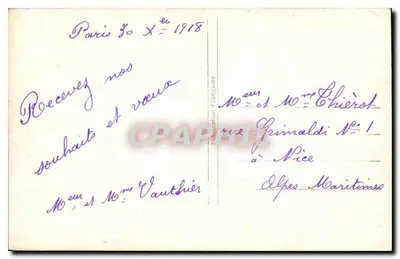 Paris 30 Xbre 1918
Recevez nos
souhaits et vœux
Meur et Mme Vauthier
Meur et Mme Thiérot
rue Grimaldi No 1
à Nice
Alpes Maritimes
CPARAMA